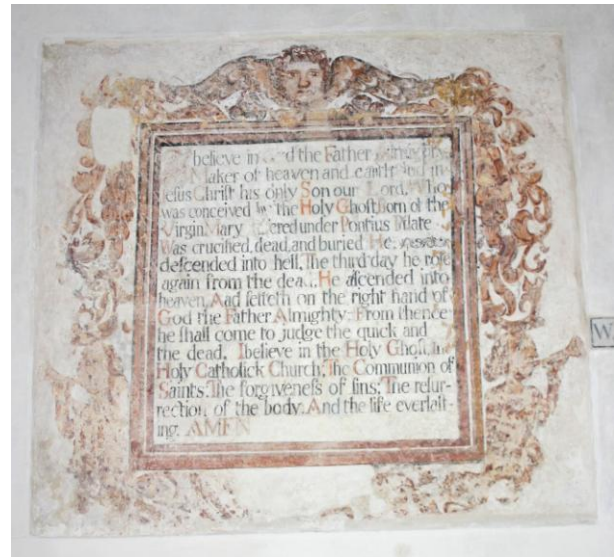 believe in the Father
Maker of heaven and earth and in
Jesus Chriſt his only Son our Lord, Who
was conceived by the Holy Ghoſt, Born of the
Virgin Mary under Pontius Pilate
Was crucified, dead, and buried He
deſcended into hell, The third day he roſe
again from the dead, He aſcended into
heaven, And ſitteth on the right hand of
God the Father Almighty: From thence
he ſhall come to judge the quick and
the dead. I believe in the Holy Ghoſt, The
Holy Catholick Church; The Communion of
Saints; The forgiveneſs of ſins; The reſur-
rection of the body; And the life everlaſt-
ing. AMEN
W